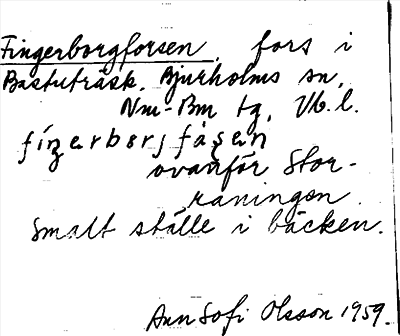 Fingerborgforsen, fors i
Bastuträsk, Bjurholms sn,
Nm-Bm tg, Vb. l.
fiŋerbɔrjfåsen
ovanför Stor-
raningen.
Smalt ställe i bäcken.
Ann Sofi Olsson 1959.